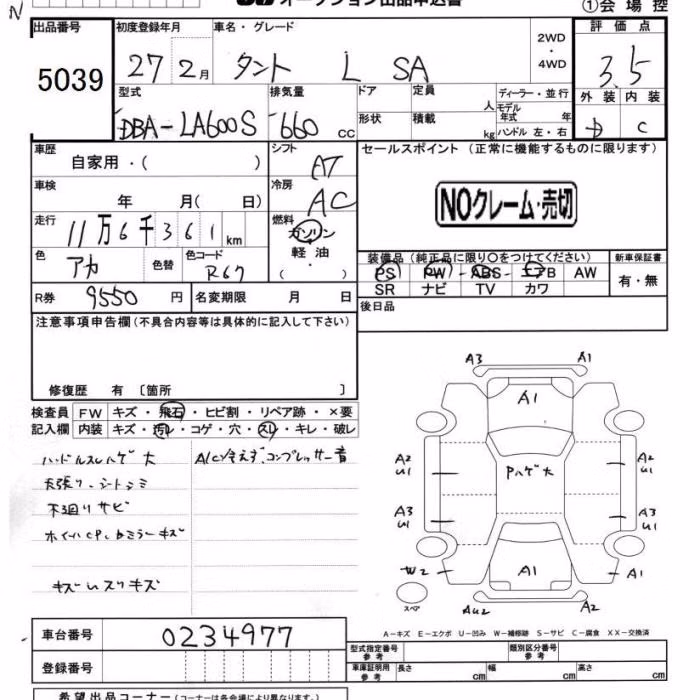 オークション出品申込書 ①会場控
出品番号 初度登録年月 車名・グレード 2WD・4WD 評価点
5039 27 2月 タント L SA 3.5
型式 排気量 ドア 定員 人 ディーラー・並行 外装 内装
DBA-LA600S 660 cc 形状 積載 kg モデル年式 年 ハンドル 左・右 D C
車歴 自家用・( ) シフト AT セールスポイント(正常に機能するものに限ります)
車検 年 月( 日) 冷房 AC
NOクレーム・売切
走行 11万6千361km 燃料 ガソリン 軽油 ・( )
色 アカ 色替 色コード R67
装備品(純正品に限り○をつけてください) 新車保証書
PS PW ABS エアB AW 有・無
SR ナビ TV カワ
R券 9550円 名変期限 月 日 後日品
注意事項申告欄(不具合内容等は具体的に記入して下さい)
修復歴 有 〔箇所 〕
検査員 FW キズ・飛石・ヒビ割・リペア跡・×要
記入欄 内装 キズ・汚レ・コゲ・穴・スレ・キレ・破レ
ハンドルスレハゲ大 A/C冷えず、コンプレッサー音
天張り、シートシミ
下廻りサビ
ホイールCP、ミラーキズ
キズ スリキズ
A3 A1
A1
A2 U1 Pハゲ大 A2 U1
A3 U1 A3 U1
W2 A1 A1
スペア AU2 A2
A-キズ E-エクボ U-凹み W-補修跡 S-サビ C-腐食 XX-交換済
車台番号 0234977
登録番号
型式指定番号 参考 類別区分番号 参考
車庫証明用 参考 長さ cm 幅 cm 高さ cm
希望出品コーナー(コーナーは各会場により異なります。)